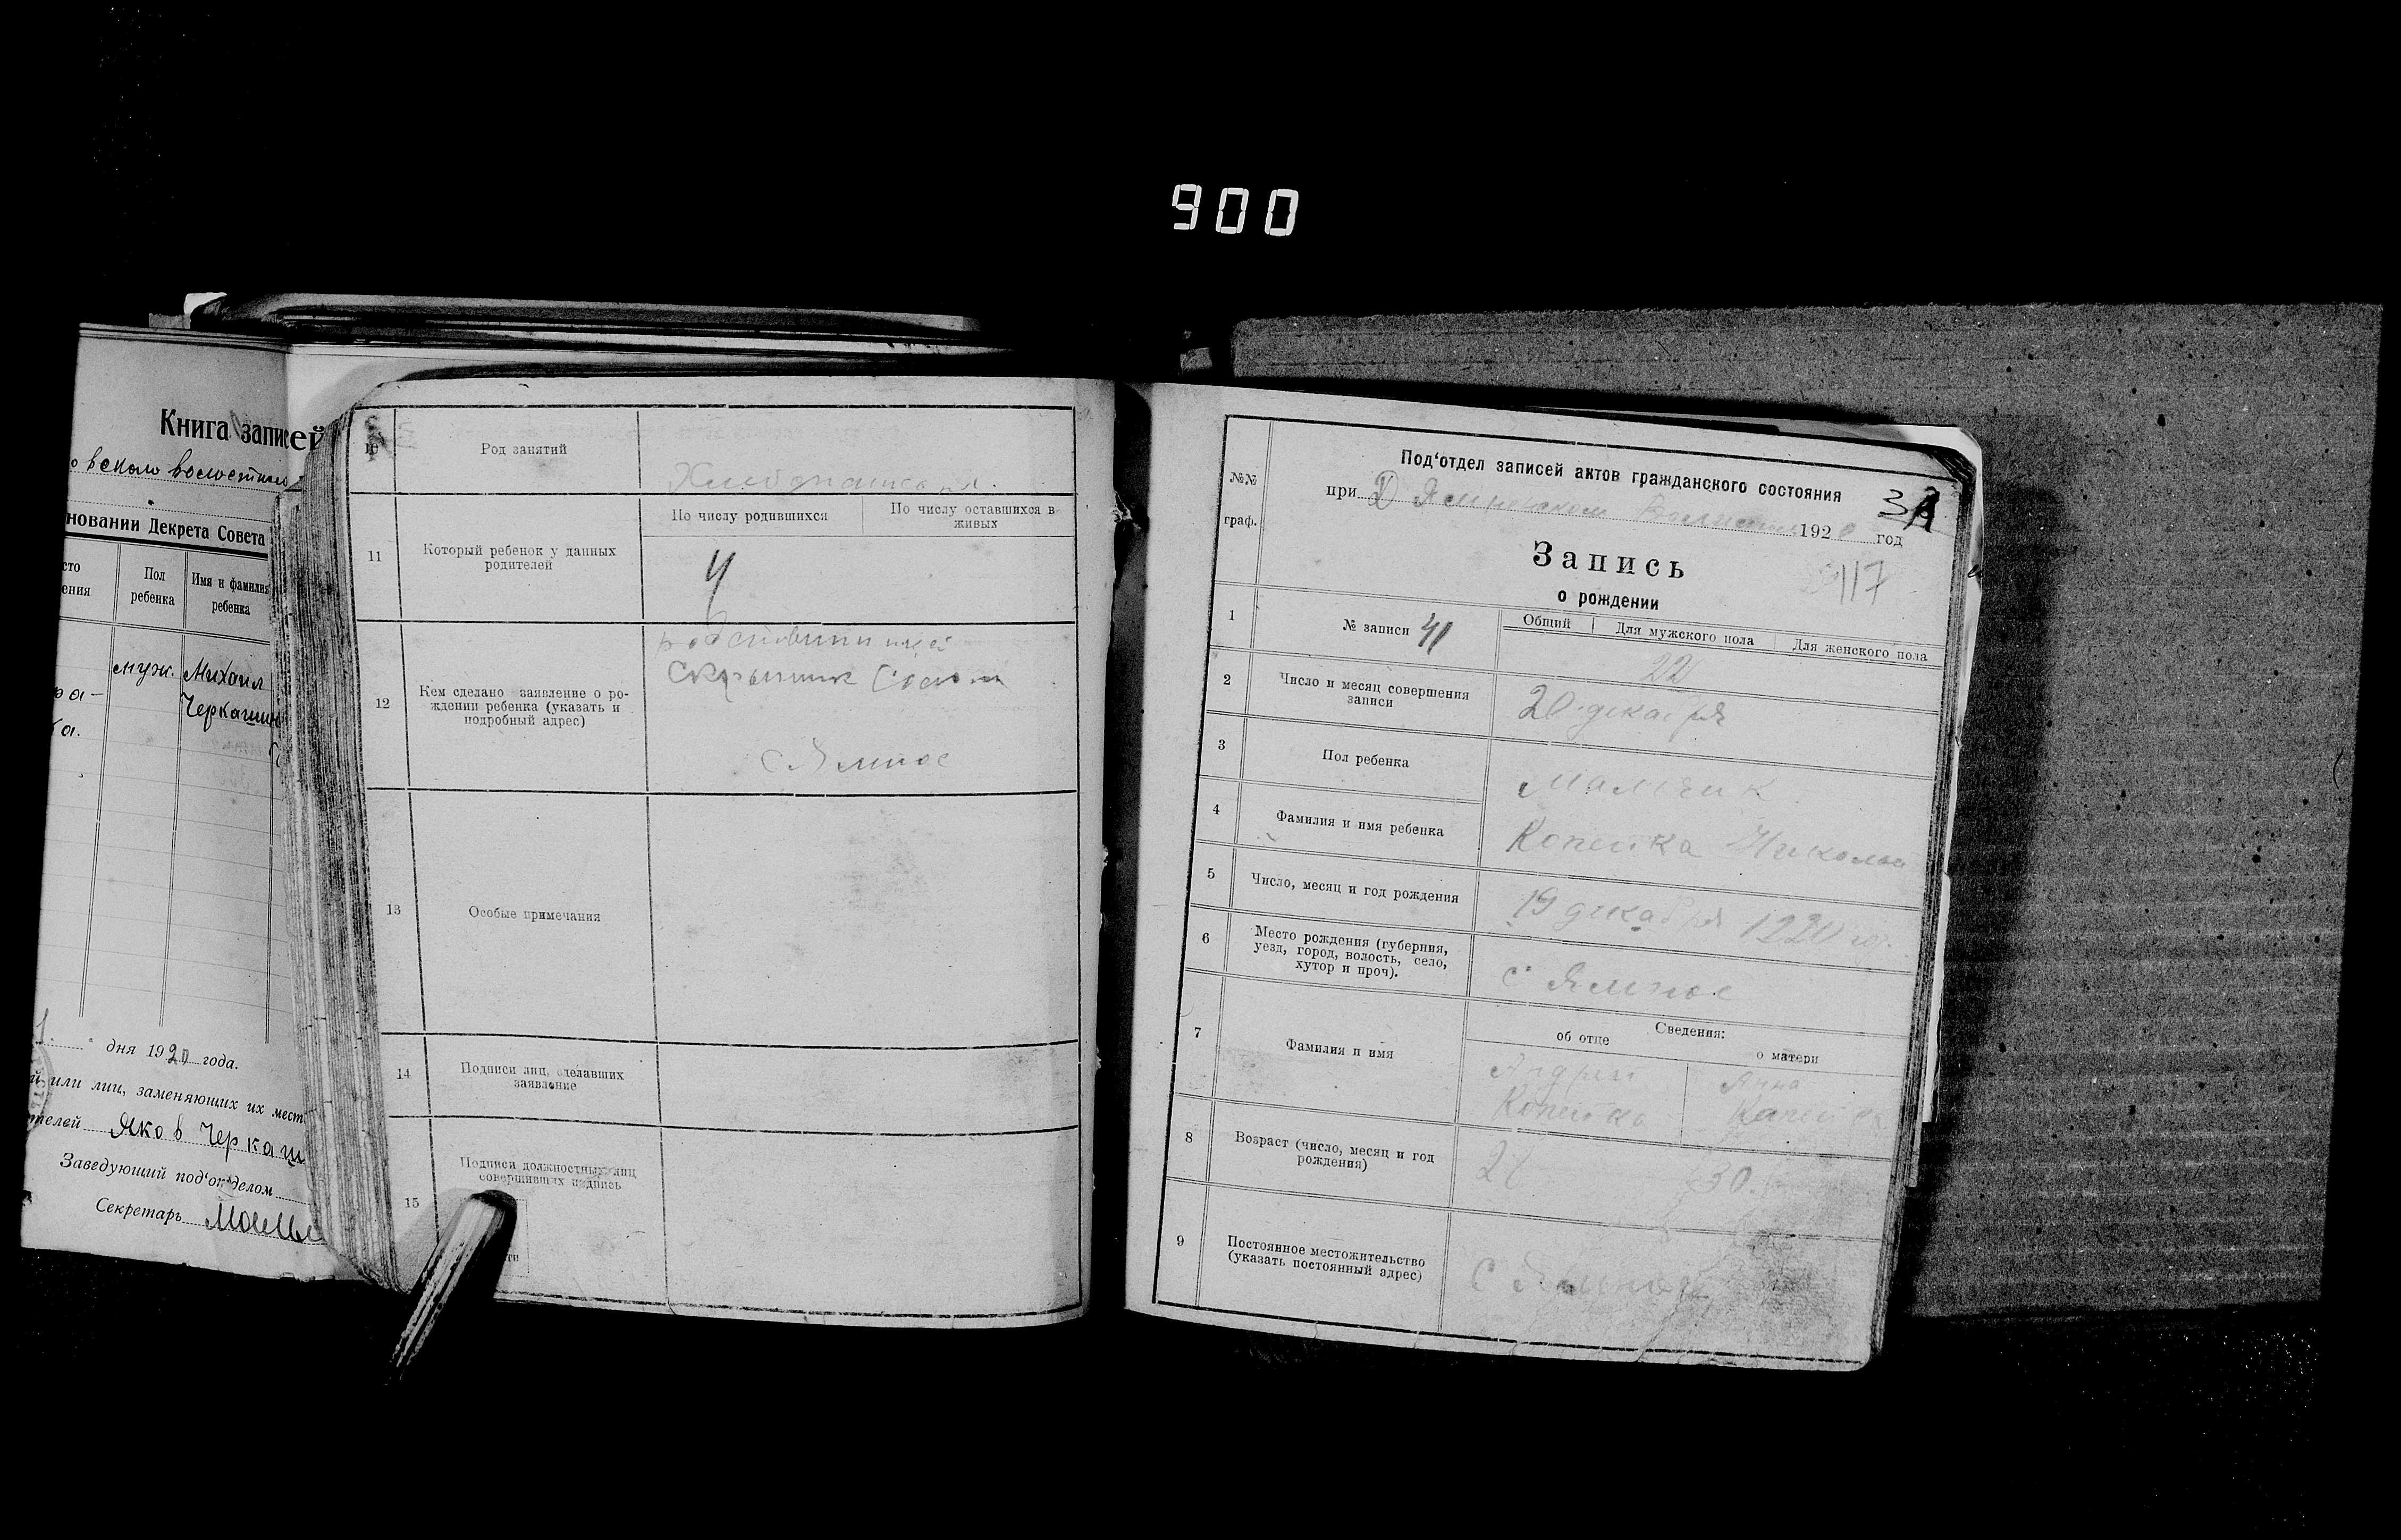 900
Книга записей
новании Декрета Совета
Пол
ребенка
Имя и фамилия
ребенка
муж.
Михаил
Черкашин
дня 1920 года.
или лиц, заменяющих их мест
Яков Черкаш
Заведующий под'отделом
Секретарь
10
Род занятий
11
Который ребенок у данных
родителей
По числу родившихся
По числу оставшихся в
живых
4
12
Кем сделано заявление о ро-
ждении ребенка (указать и
подробный адрес)
Скрыпник
с Ямное
13
Особые примечания
14
Подписи лиц, сделавших
заявление
15
Подписи должностных лиц
совершивших надпись
№№
граф.
Под'отдел записей актов гражданского состояния
при
1920 год
Запись
о рождении
117
1
№ записи 41
Общий
Для мужского пола
Для женского пола
22
2
Число и месяц совершения
записи
20 декабря
3
Пол ребенка
Мальчик
4
Фамилия и имя ребенка
Копейка Николай
5
Число, месяц и год рождения
19 декабря 1920 го.
6
Место рождения (губерния,
уезд, город, волость, село,
хутор и проч).
с Ямное
7
Фамилия и имя
Сведения:
об отце
о матери
Андрей
Копейка
Анна
Копейка
8
Возраст (число, месяц и год
рождения)
30.
9
Постоянное местожительство
(указать постоянный адрес)
с Ямное